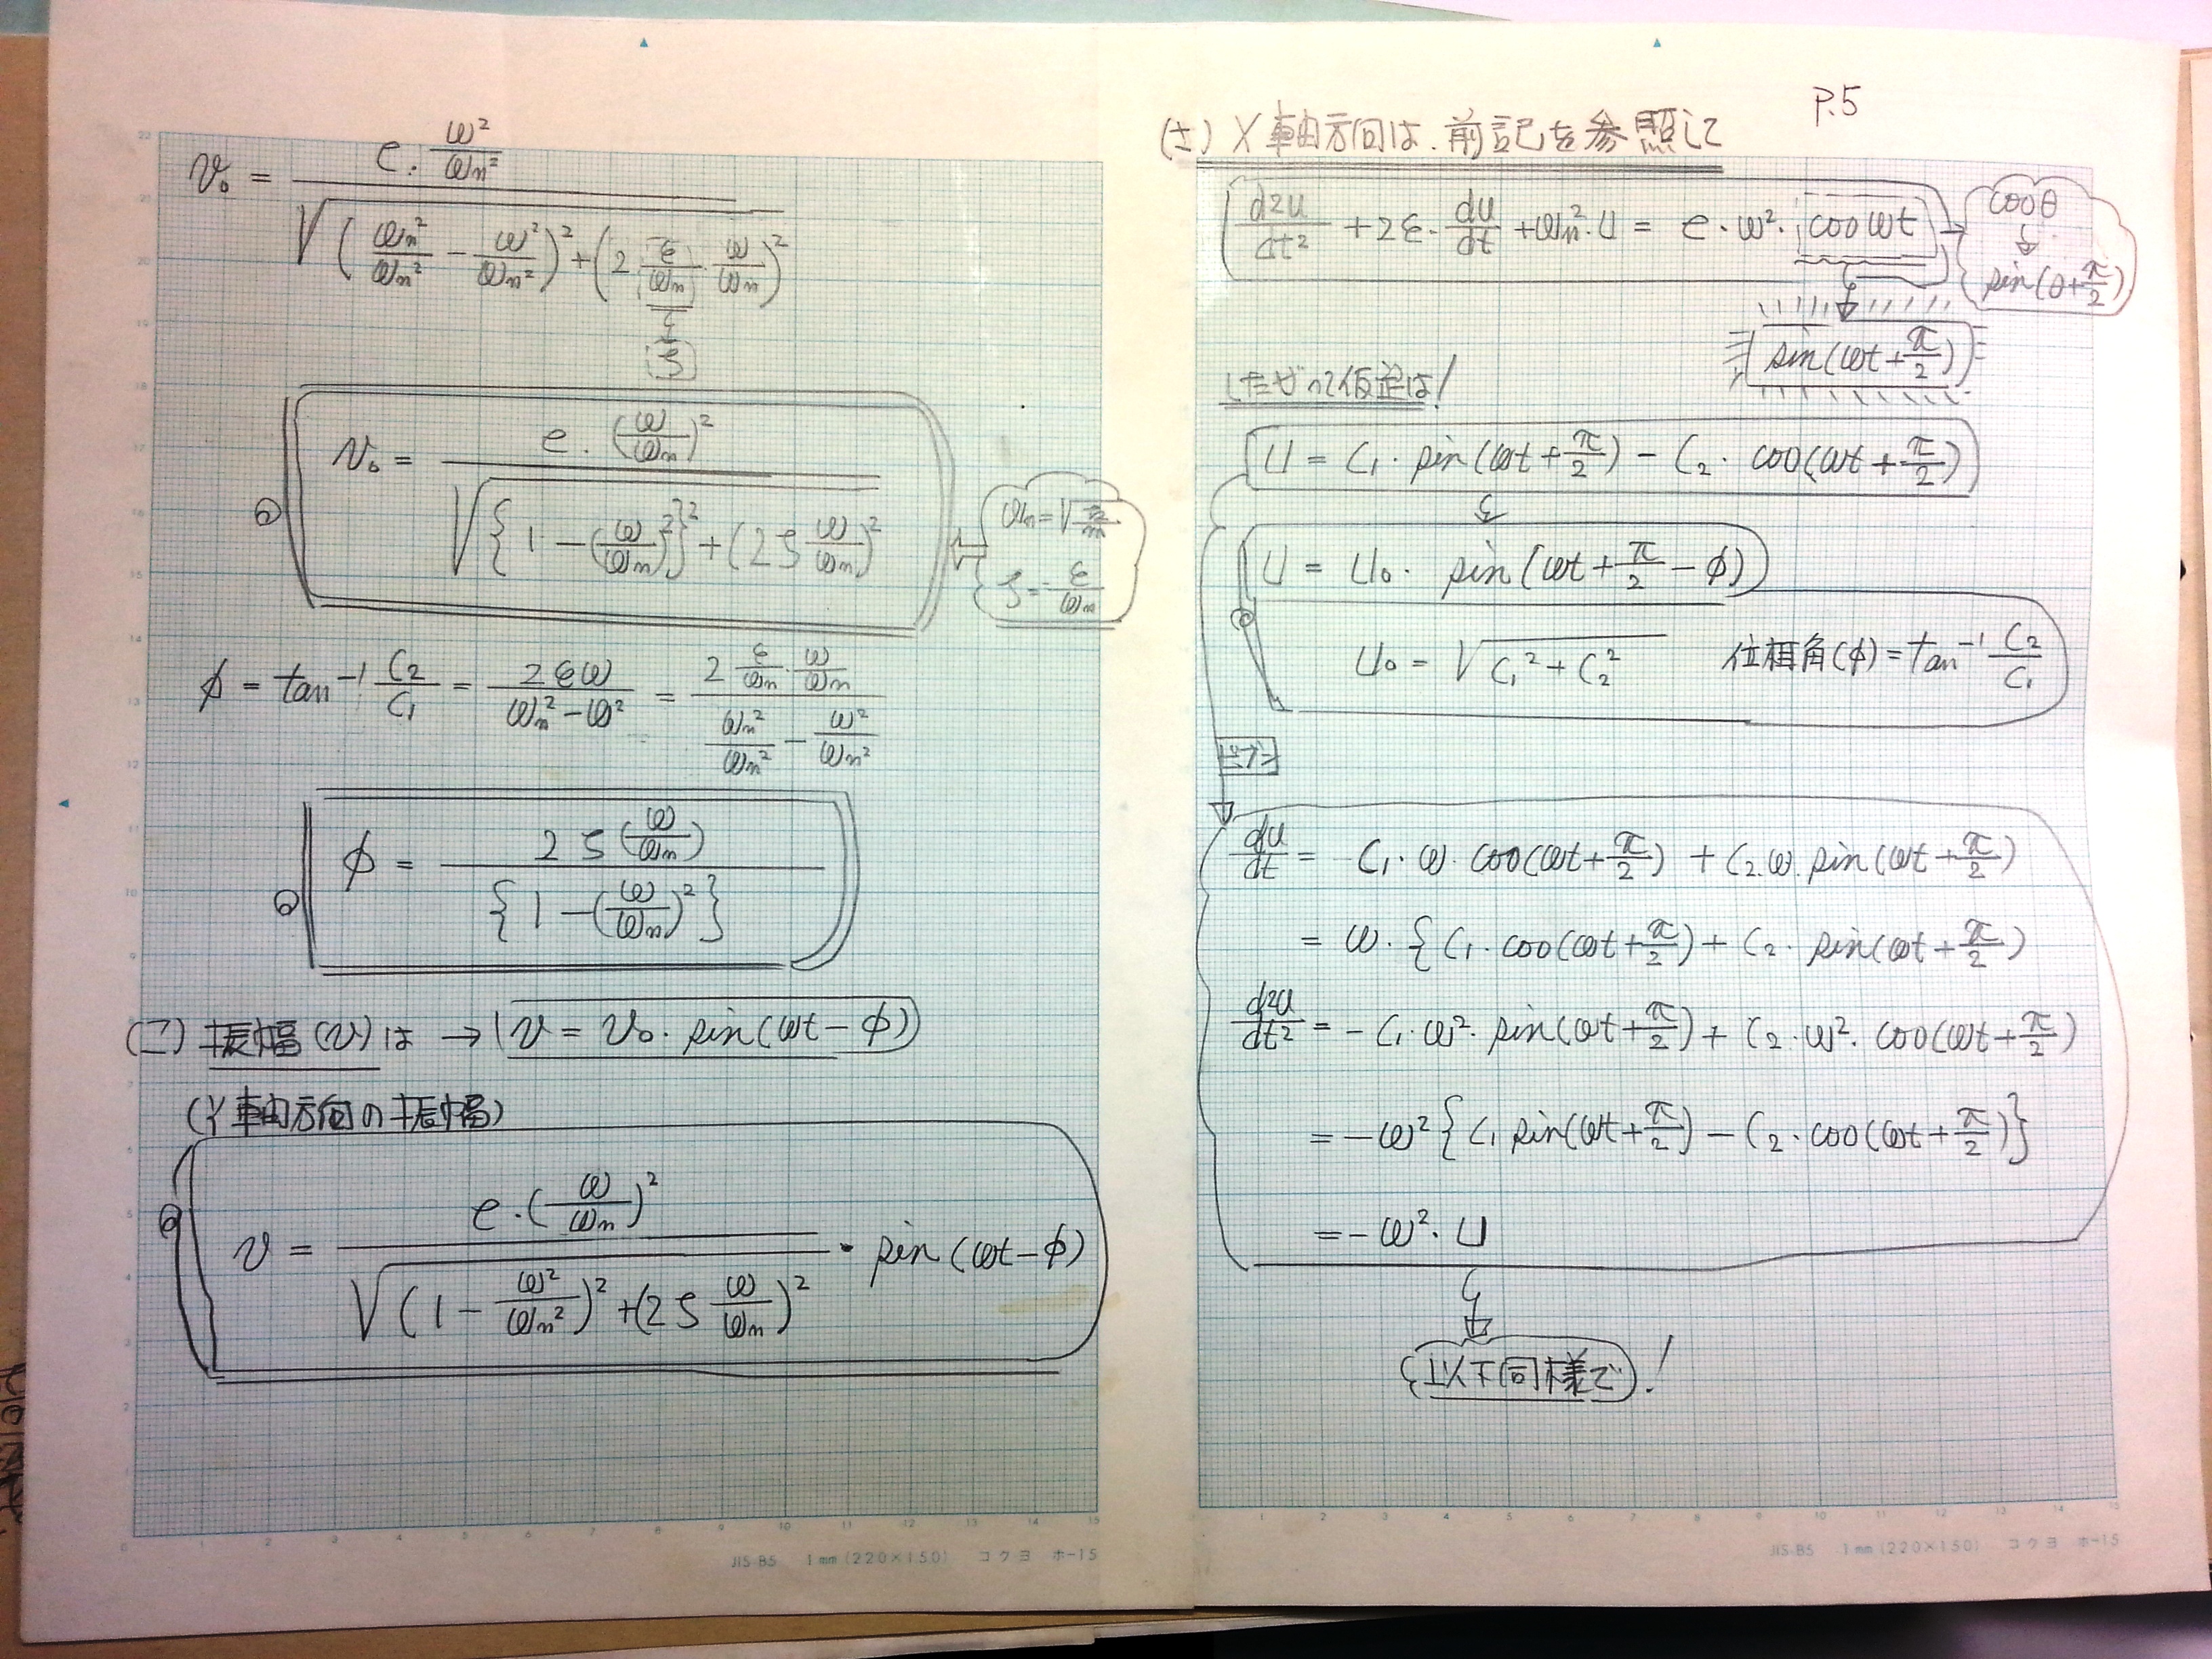 v₀ = e・ω²/ωn² / √((ωn²/ωn² − ω²/ωn²)² + (2 ε/ωn・ω/ωn)²)
ζ
v₀ = e・(ω/ωn)² / √({1 − (ω/ωn)²}² + (2ζ ω/ωn)²)
ζ = ε/ωn
φ = tan⁻¹ C₂/C₁ = 2εω / ωn² − ω² = 2 ε/ωn・ω/ωn / ωn²/ωn² − ω²/ωn²
φ = 2ζ(ω/ωn) / {1 − (ω/ωn)²}
(ニ) 振幅(v)は → v = v₀・sin(ωt − φ)
(Y軸方向の振幅)
v = e・(ω/ωn)² / √((1 − ω²/ωn²)² + (2ζ ω/ωn)²)・sin(ωt − φ)
JIS-B5 1mm (220×150) コクヨ ホ-15
P.5
(ホ) X軸方向は、前記を参照して
d²u/dt² + 2ε・du/dt + ωn²・u = e・ω²・cosωt
cosθ
↓
sin(θ + π/2)
sin(ωt + π/2)
したがって仮定は!
u = C₁・sin(ωt + π/2) − C₂・cos(ωt + π/2)
u = u₀・sin(ωt + π/2 − φ)
u₀ = √C₁² + C₂² 位相角(φ) = tan⁻¹ C₂/C₁
du/dt = C₁・ω・cos(ωt + π/2) + C₂・ω・sin(ωt + π/2)
= ω・{C₁・cos(ωt + π/2) + C₂・sin(ωt + π/2)
d²u/dt² = −C₁・ω²・sin(ωt + π/2) + C₂・ω²・cos(ωt + π/2)
= −ω²{C₁ sin(ωt + π/2) − C₂・cos(ωt + π/2)}
= −ω²・u
以下同様で!
JIS-B5 1mm (220×150) コクヨ ホ-15